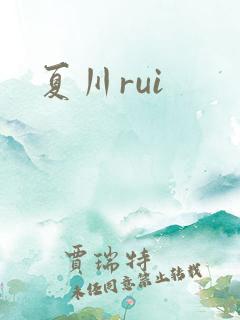 夏川rui
賈瑞特
未经同意禁止转载